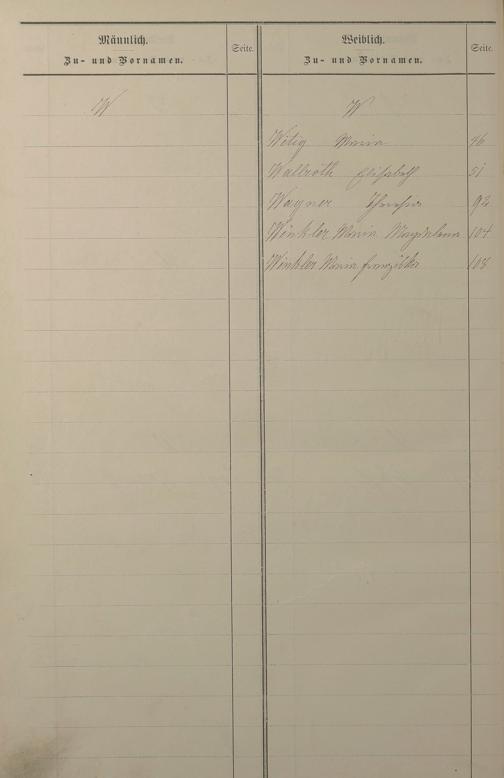 Männlich.
Zu- und Vornamen.
Seite.
Weiblich.
Zu- und Vornamen.
Seite.
W
W
Witig Maria 46
Wallroth Elisabeth 51
Wagner Theresia 92
Winkler Maria Magdalena 104
Winkler Maria Franziska 108